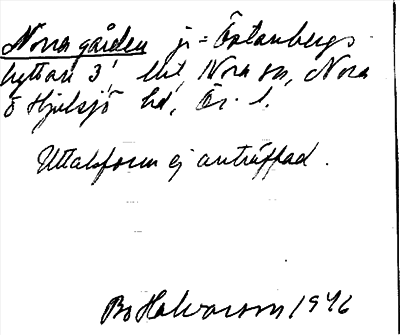 Norra gården jr = Östanbergs-
hyttan 3, litt, Nora sn, Nora
o Hjulsjö hd, Ör. l.
Uttalsform ej anträffad.
Bo Halvarson 1946